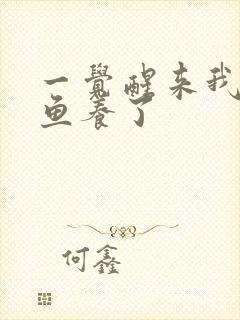 一覺醒来我
鱼养了
何鑫